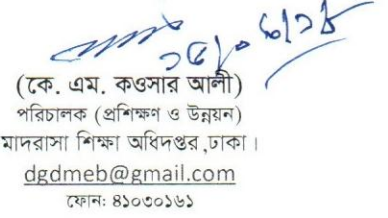 (কে. এম. কওসার আলী)
পরিচালক (প্রশিক্ষণ ও উন্নয়ন)
মাদরাসা শিক্ষা অধিদপ্তর ,ঢাকা।
dgdmeb@gmail.com
ফোন: ৪১০৩০১৬১